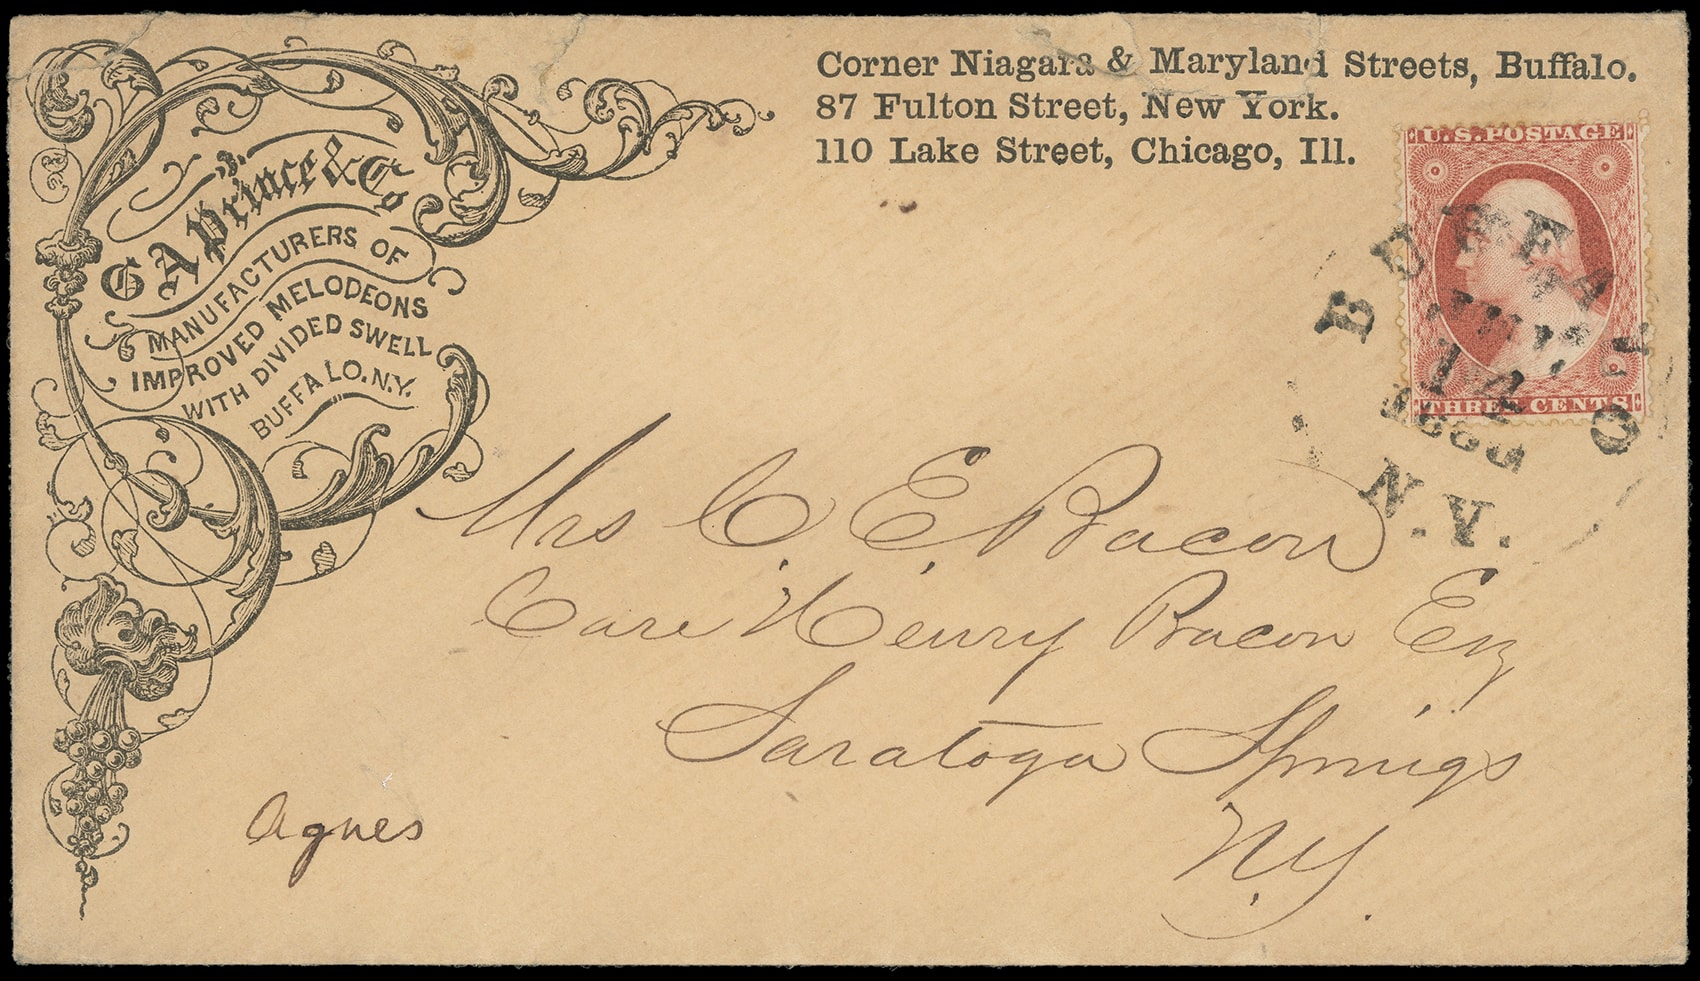 G A Prince & Co
MANUFACTURERS OF
IMPROVED MELODEONS
WITH DIVIDED SWELL
BUFFALO. N.Y.
Corner Niagara & Maryland Streets, Buffalo.
87 Fulton Street, New York.
110 Lake Street, Chicago, Ill.
U.S. POSTAGE
THREE CENTS
BUFFALO
14
N.Y.
Mrs C. E. Bacon
Care Henry Bacon Esq
Saratoga Springs
N.Y.
Agnes